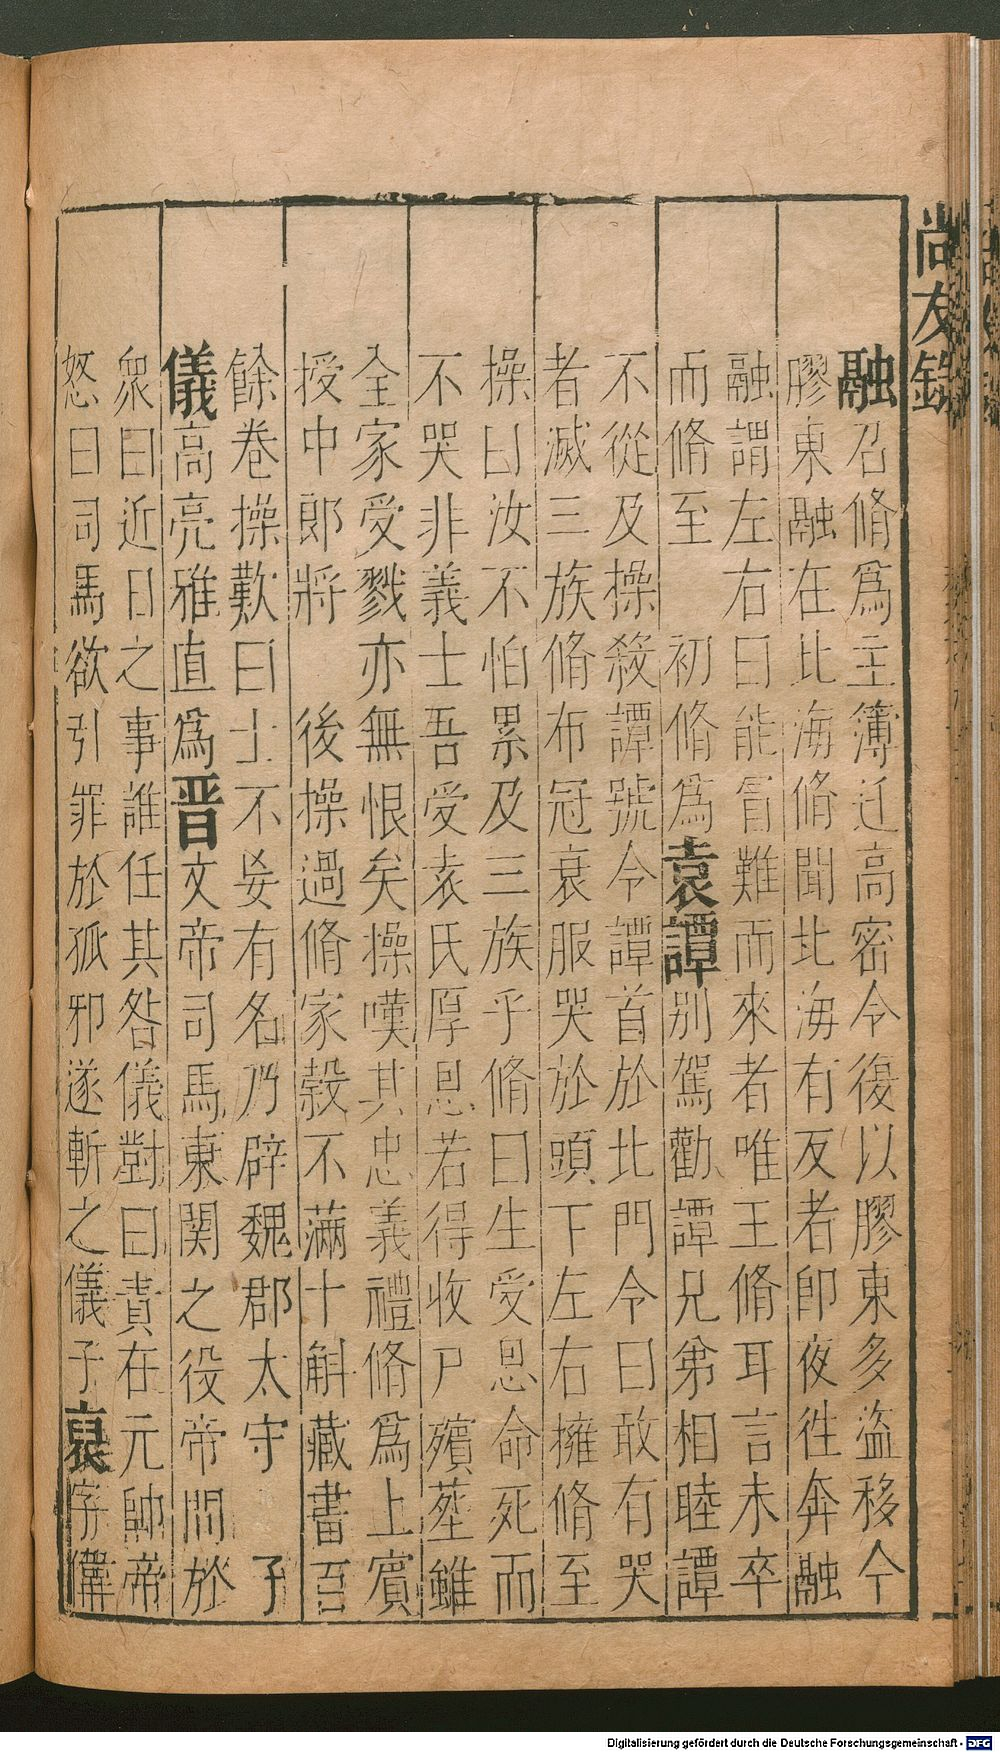 尚友錄
融召脩爲主簿迁高密令復以膠東多盜移令
膠東融在北海脩聞北海有反者卽夜徃奔融
融謂左右曰能冒難而來者唯王脩耳言未卒
而脩至 初脩爲袁譚别駕勸譚兄弟相睦譚
不從及操殺譚號令譚首於北門令曰敢有哭
者滅三族脩布冠衰服哭於頭下左右擁脩至
操曰汝不怕累及三族乎脩曰生受恩命死而
不哭非義士吾受袁氏厚恩若得收尸殯塟雖
全家受戮亦無恨矣操嘆其忠義禮脩爲上賓
授中郎將 後操過脩家穀不滿十斛藏書百
餘卷操歎曰士不妄有名乃辟魏郡太守 子
儀高亮雅直爲晋文帝司馬東関之役帝問於
衆曰近日之事誰任其咎儀對曰責在元帥帝
怒曰司馬欲引罪於孤邪遂斬之儀子裒字偉
Digitalisierung gefördert durch die Deutsche Forschungsgemeinschaft - DFG